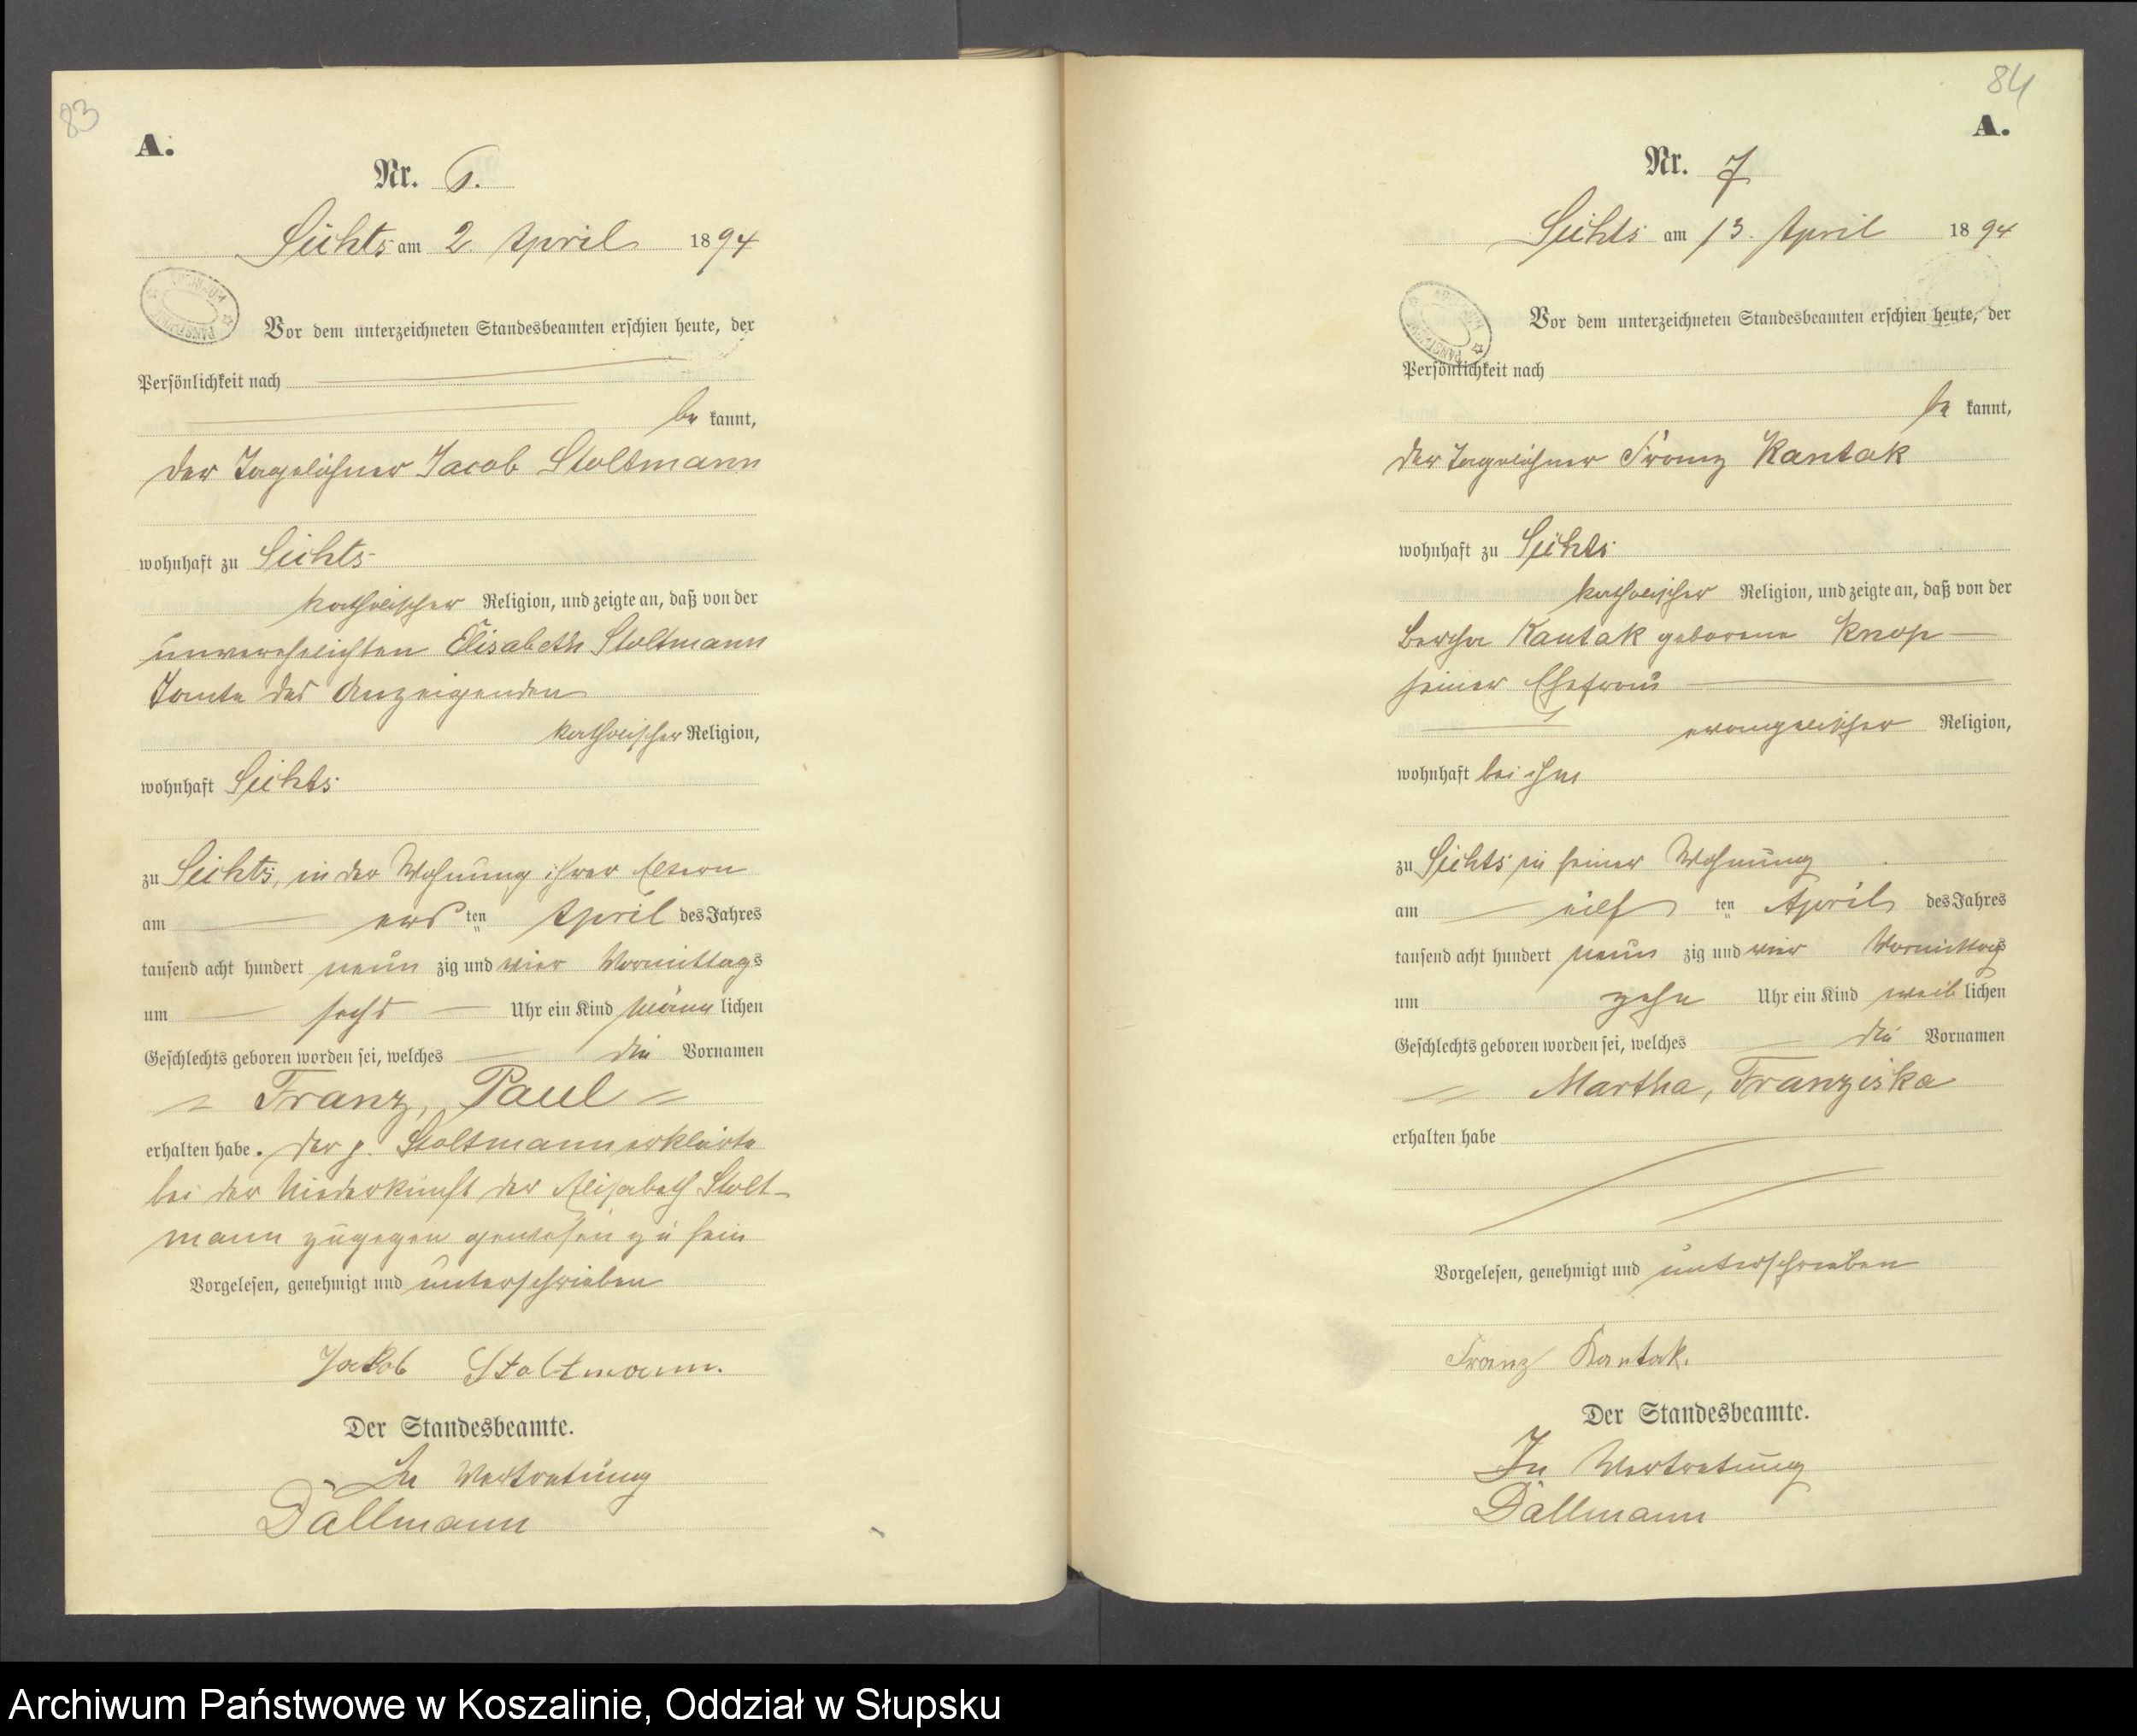 83
A.
Nr. 6.
Sichts am 2 April 1894
Vor dem unterzeichneten Standesbeamten erschien heute, der
Persönlichkeit nach
be kannt,
der Tagelöhner Jacob Stoltmann
wohnhaft zu Sichts
katholischer Religion, und zeigte an, daß von der
unverehelichten Elisabeth Stoltmann
Tante des Anzeigenden
katholischer Religion,
wohnhaft Sichts
zu Sichts, in der Wohnung ihrer Eltern
am ersten April des Jahres
tausend acht hundert neun zig und vier Vormittags
um sechs Uhr ein Kind männ lichen
Geschlechts geboren worden sei, welches die Vornamen
Franz, Paul
erhalten habe. Der p. Stoltmann erklärte
bei der Niederkunft der Elisabeth Stolt-
mann zugegen gewesen zu sein
Vorgelesen, genehmigt und unterschrieben
Jakob Stoltmann.
Der Standesbeamte.
In Vertretung
Dallmann
84
A.
Nr. 7
Sichts am 13. April 1894
Vor dem unterzeichneten Standesbeamten erschien heute, der
Persönlichkeit nach
be kannt,
der Tagelöhner Franz Kantak
wohnhaft zu Sichts
katholischer Religion, und zeigte an, daß von der
Bertha Kantak geborene Knop
seiner Ehefrau
evangelischer Religion,
wohnhaft bei ihm
zu Sichts in seiner Wohnung
am eilf ten April des Jahres
tausend acht hundert neun zig und vier Vormittags
um zehn Uhr ein Kind weib lichen
Geschlechts geboren worden sei, welches die Vornamen
Martha, Franziska
erhalten habe
Vorgelesen, genehmigt und unterschrieben
Franz Kantak.
Der Standesbeamte.
In Vertretung
Dallmann
Archiwum Państwowe w Koszalinie, Oddział w Słupsku